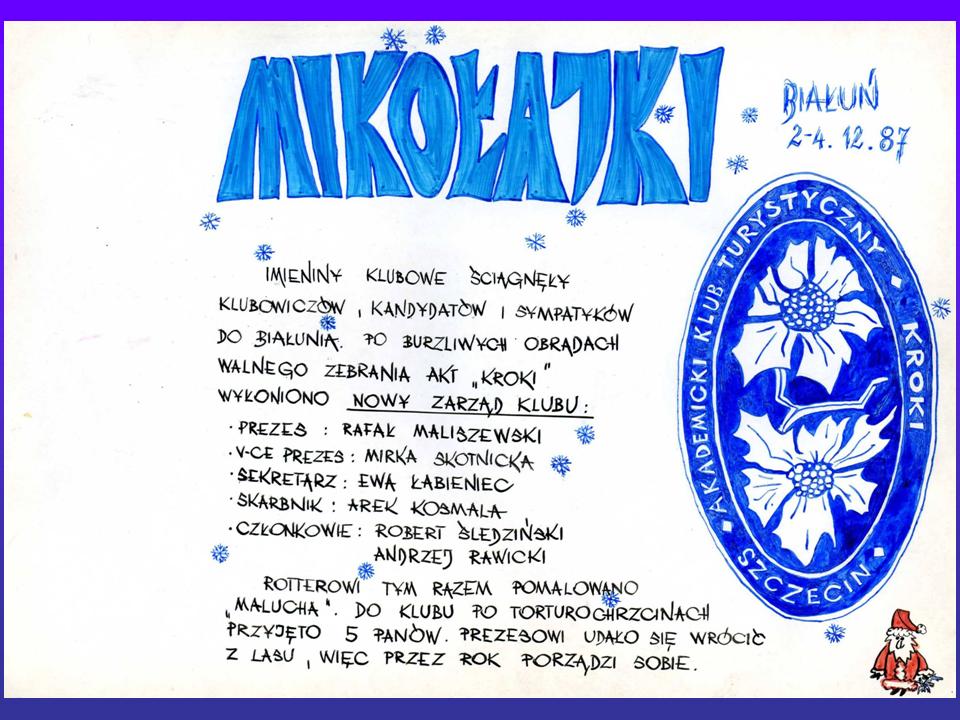 MIKOŁAJKI
BIAŁUŃ
2-4. 12.87
IMIENINY KLUBOWE ŚCIĄGNĘŁY
KLUBOWICZÓW, KANDYDATÓW I SYMPATYKÓW
DO BIAŁUNIA. PO BURZLIWYCH OBRADACH
WALNEGO ZEBRANIA AKT „KROKI"
WYŁONIONO NOWY ZARZĄD KLUBU:
· PREZES : RAFAŁ MALISZEWSKI
· V-CE PREZES : MIRKA SKOTNICKA
· SEKRETARZ : EWA ŁABIENIEC
· SKARBNIK : AREK KOSMALA
· CZŁONKOWIE : ROBERT ŚLEDZIŃSKI
ANDRZEJ RAWICKI
ROTTEROWI TYM RAZEM POMALOWANO
„MALUCHA". DO KLUBU PO TORTUROCHRZCINACH
PRZYJĘTO 5 PANÓW. PREZESOWI UDAŁO SIĘ WRÓCIĆ
Z LASU, WIĘC PRZEZ ROK PORZĄDZI SOBIE.
AKADEMICKI KLUB TURYSTYCZNY KROKI
SZCZECIN